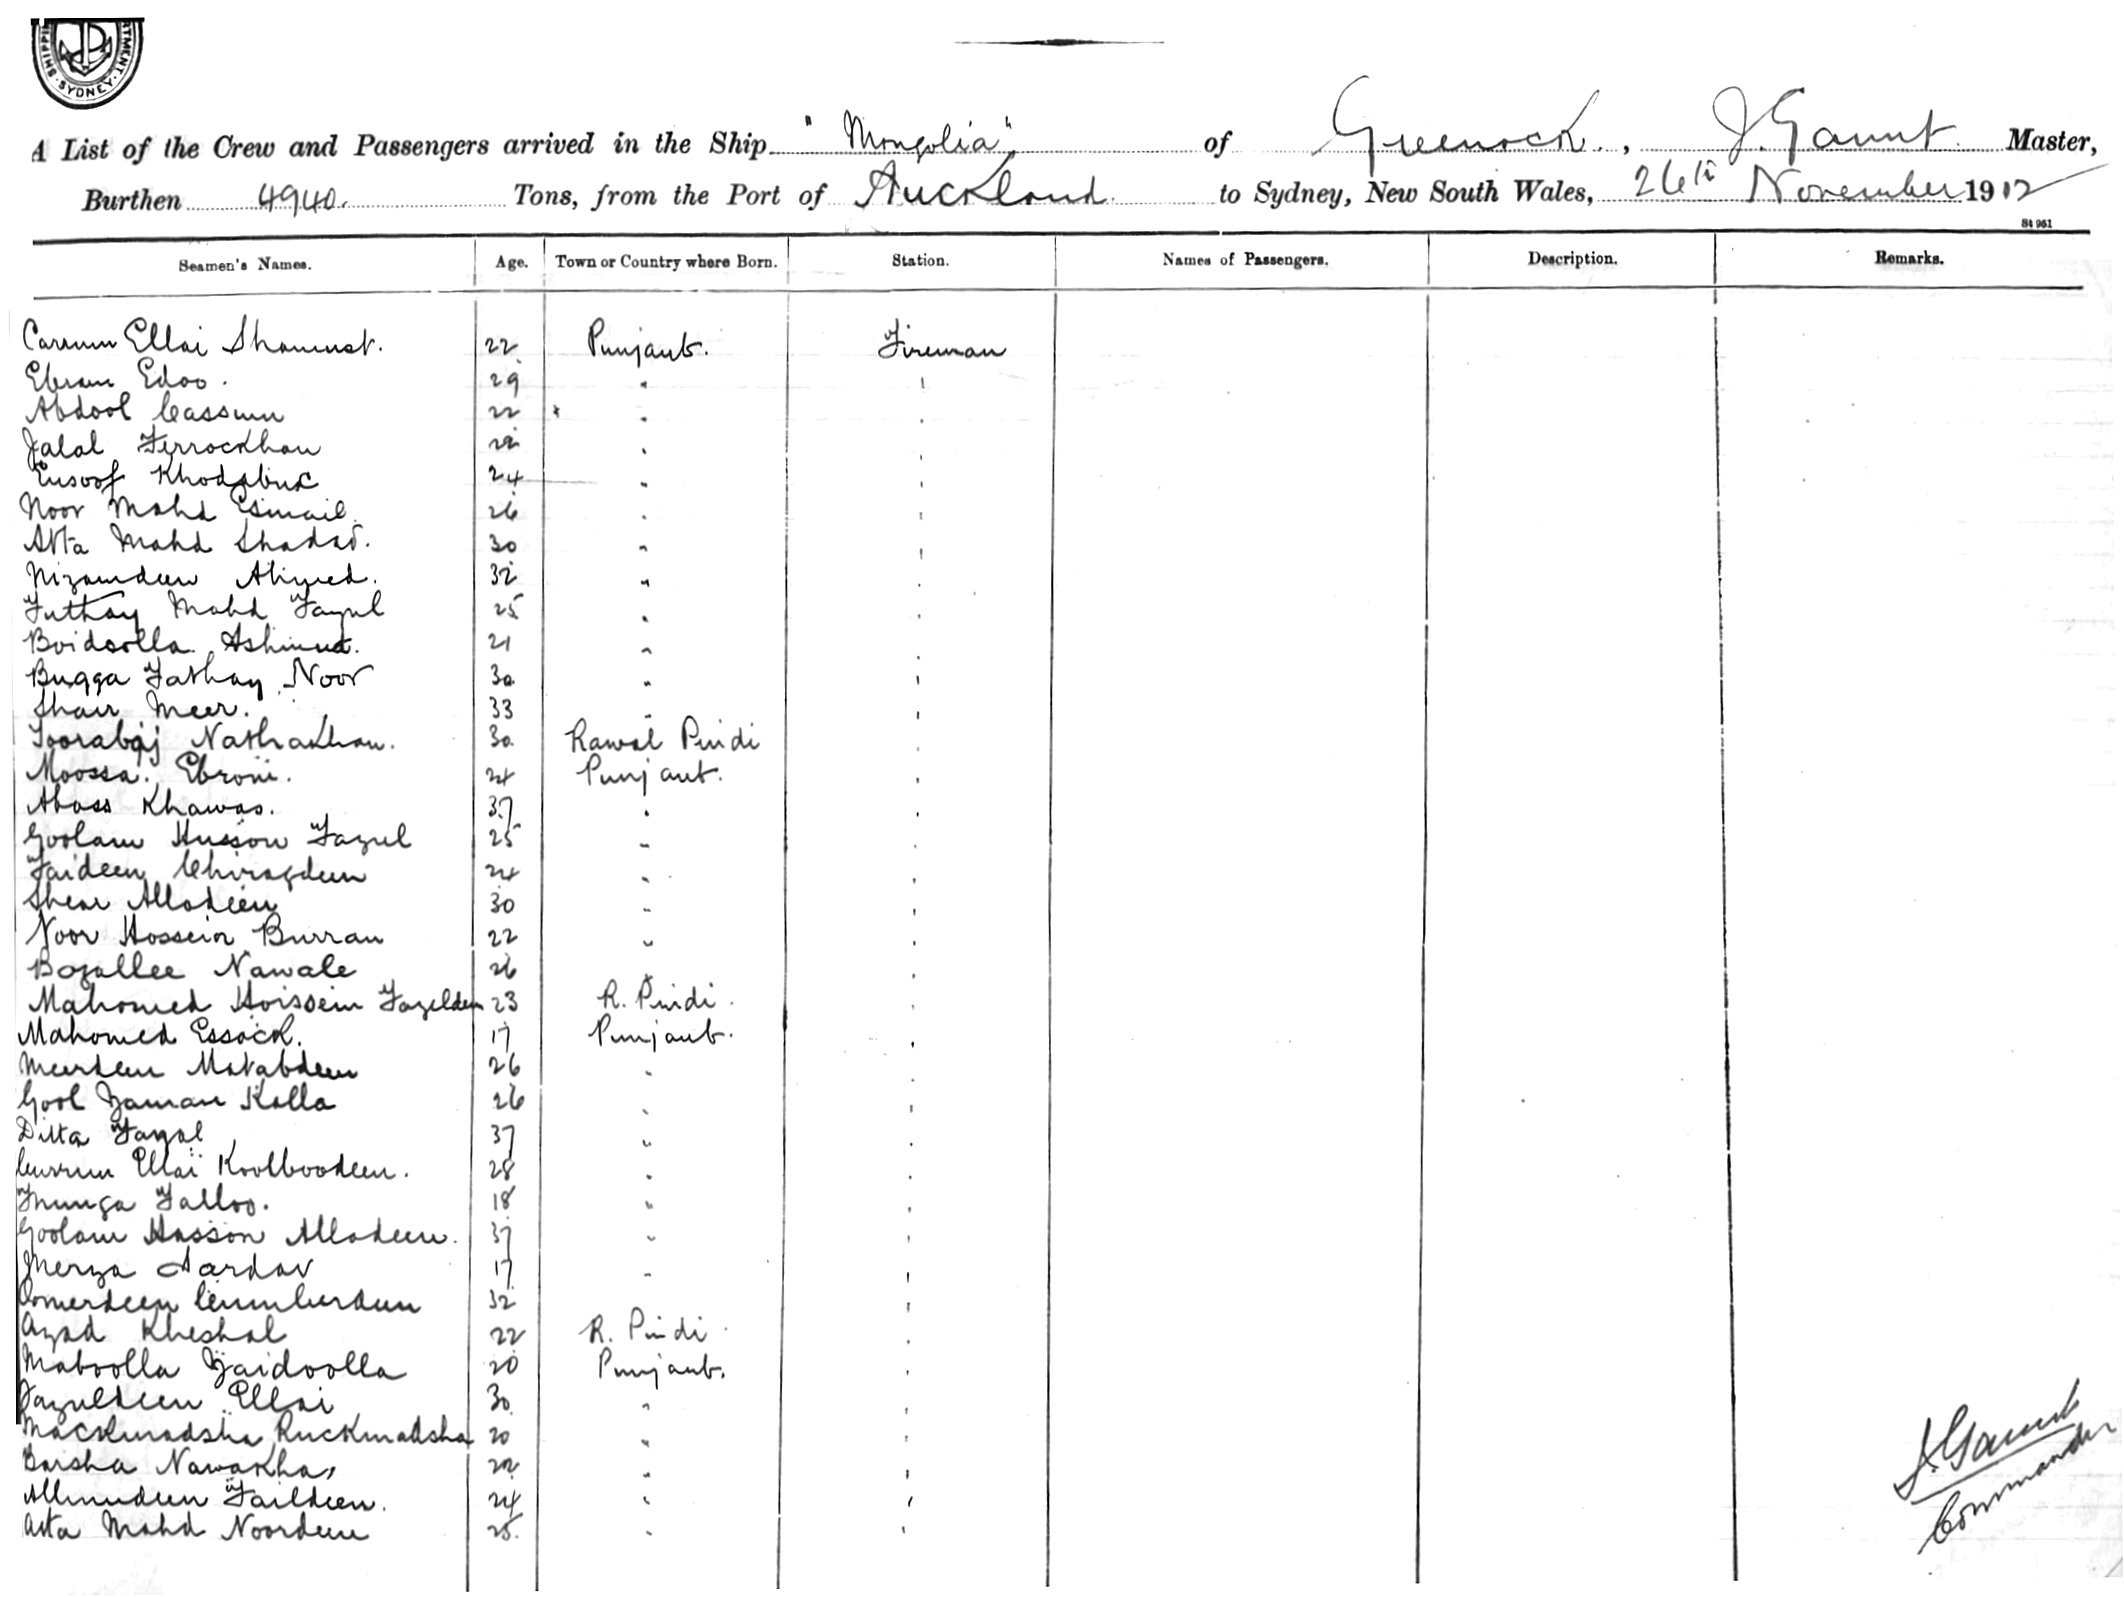 SHIPPING DEPARTMENT. SYDNEY
A List of the Crew and Passengers arrived in the Ship "Mongolia" of Greenock, J. Gaunt Master,
Burthen 4940 Tons, from the Port of Auckland to Sydney, New South Wales, 26th November 1912
St 951
Seamen's Names. Age. Town or Country where Born. Station. Names of Passengers. Description. Remarks.
Carrum Ellai Shamust. 22 Punjaub. Fireman
Ebram Edoo. 29 "
Abdool Cassum 22 "
Jalal Ferrockhan 22 "
Eusoof Khodabux 24 "
Noor Mahd Esmail 26 "
Atta Mahd Shadad. 30 "
Nizamdeen Ahmed. 32 "
Futhay Mahd Fazul 25 "
Boidoolla 21 "
Bugga Fathay Noor 30 "
Shair Meer. 33 "
Toorabaj Nathakhan. 30 Rawal Pindi
Moossa. Ebroni. 24 Punjaub.
Aboss Khawas. 37 "
Goolam Husson Fazul 25 "
Faideen Chiragdeen 24 "
Shear Allodeen 30 "
Noor Hossein Burran 22 "
Bozallee Nawale 26 "
Mahomed Hoissein Fazeldeen 23 R. Pindi.
Mahomed Essack. 17 Punjaub.
Meerdeen Matabdeen 26 "
Gool Zaman Kalla 26 "
Ditta Fazal 37 "
Currum Ellai Koolboodeen. 28 "
Falloo. 18 "
Goolam Hasson Allodeen. 37 "
Merza Sardar 17 "
Oomerdeen 32 "
Azad Kheshal 22 R. Pindi
Maboolla Zaidoolla 20 Punjaub.
Fazuldeen Ellai 30 "
Mackmadsha Ruckmadsha 20 "
Barsha Nawakha, 22 "
Allmudeen Faildeen. 24 "
Atta Mahd Noordeen 25. "
J. Gaunt
Commander